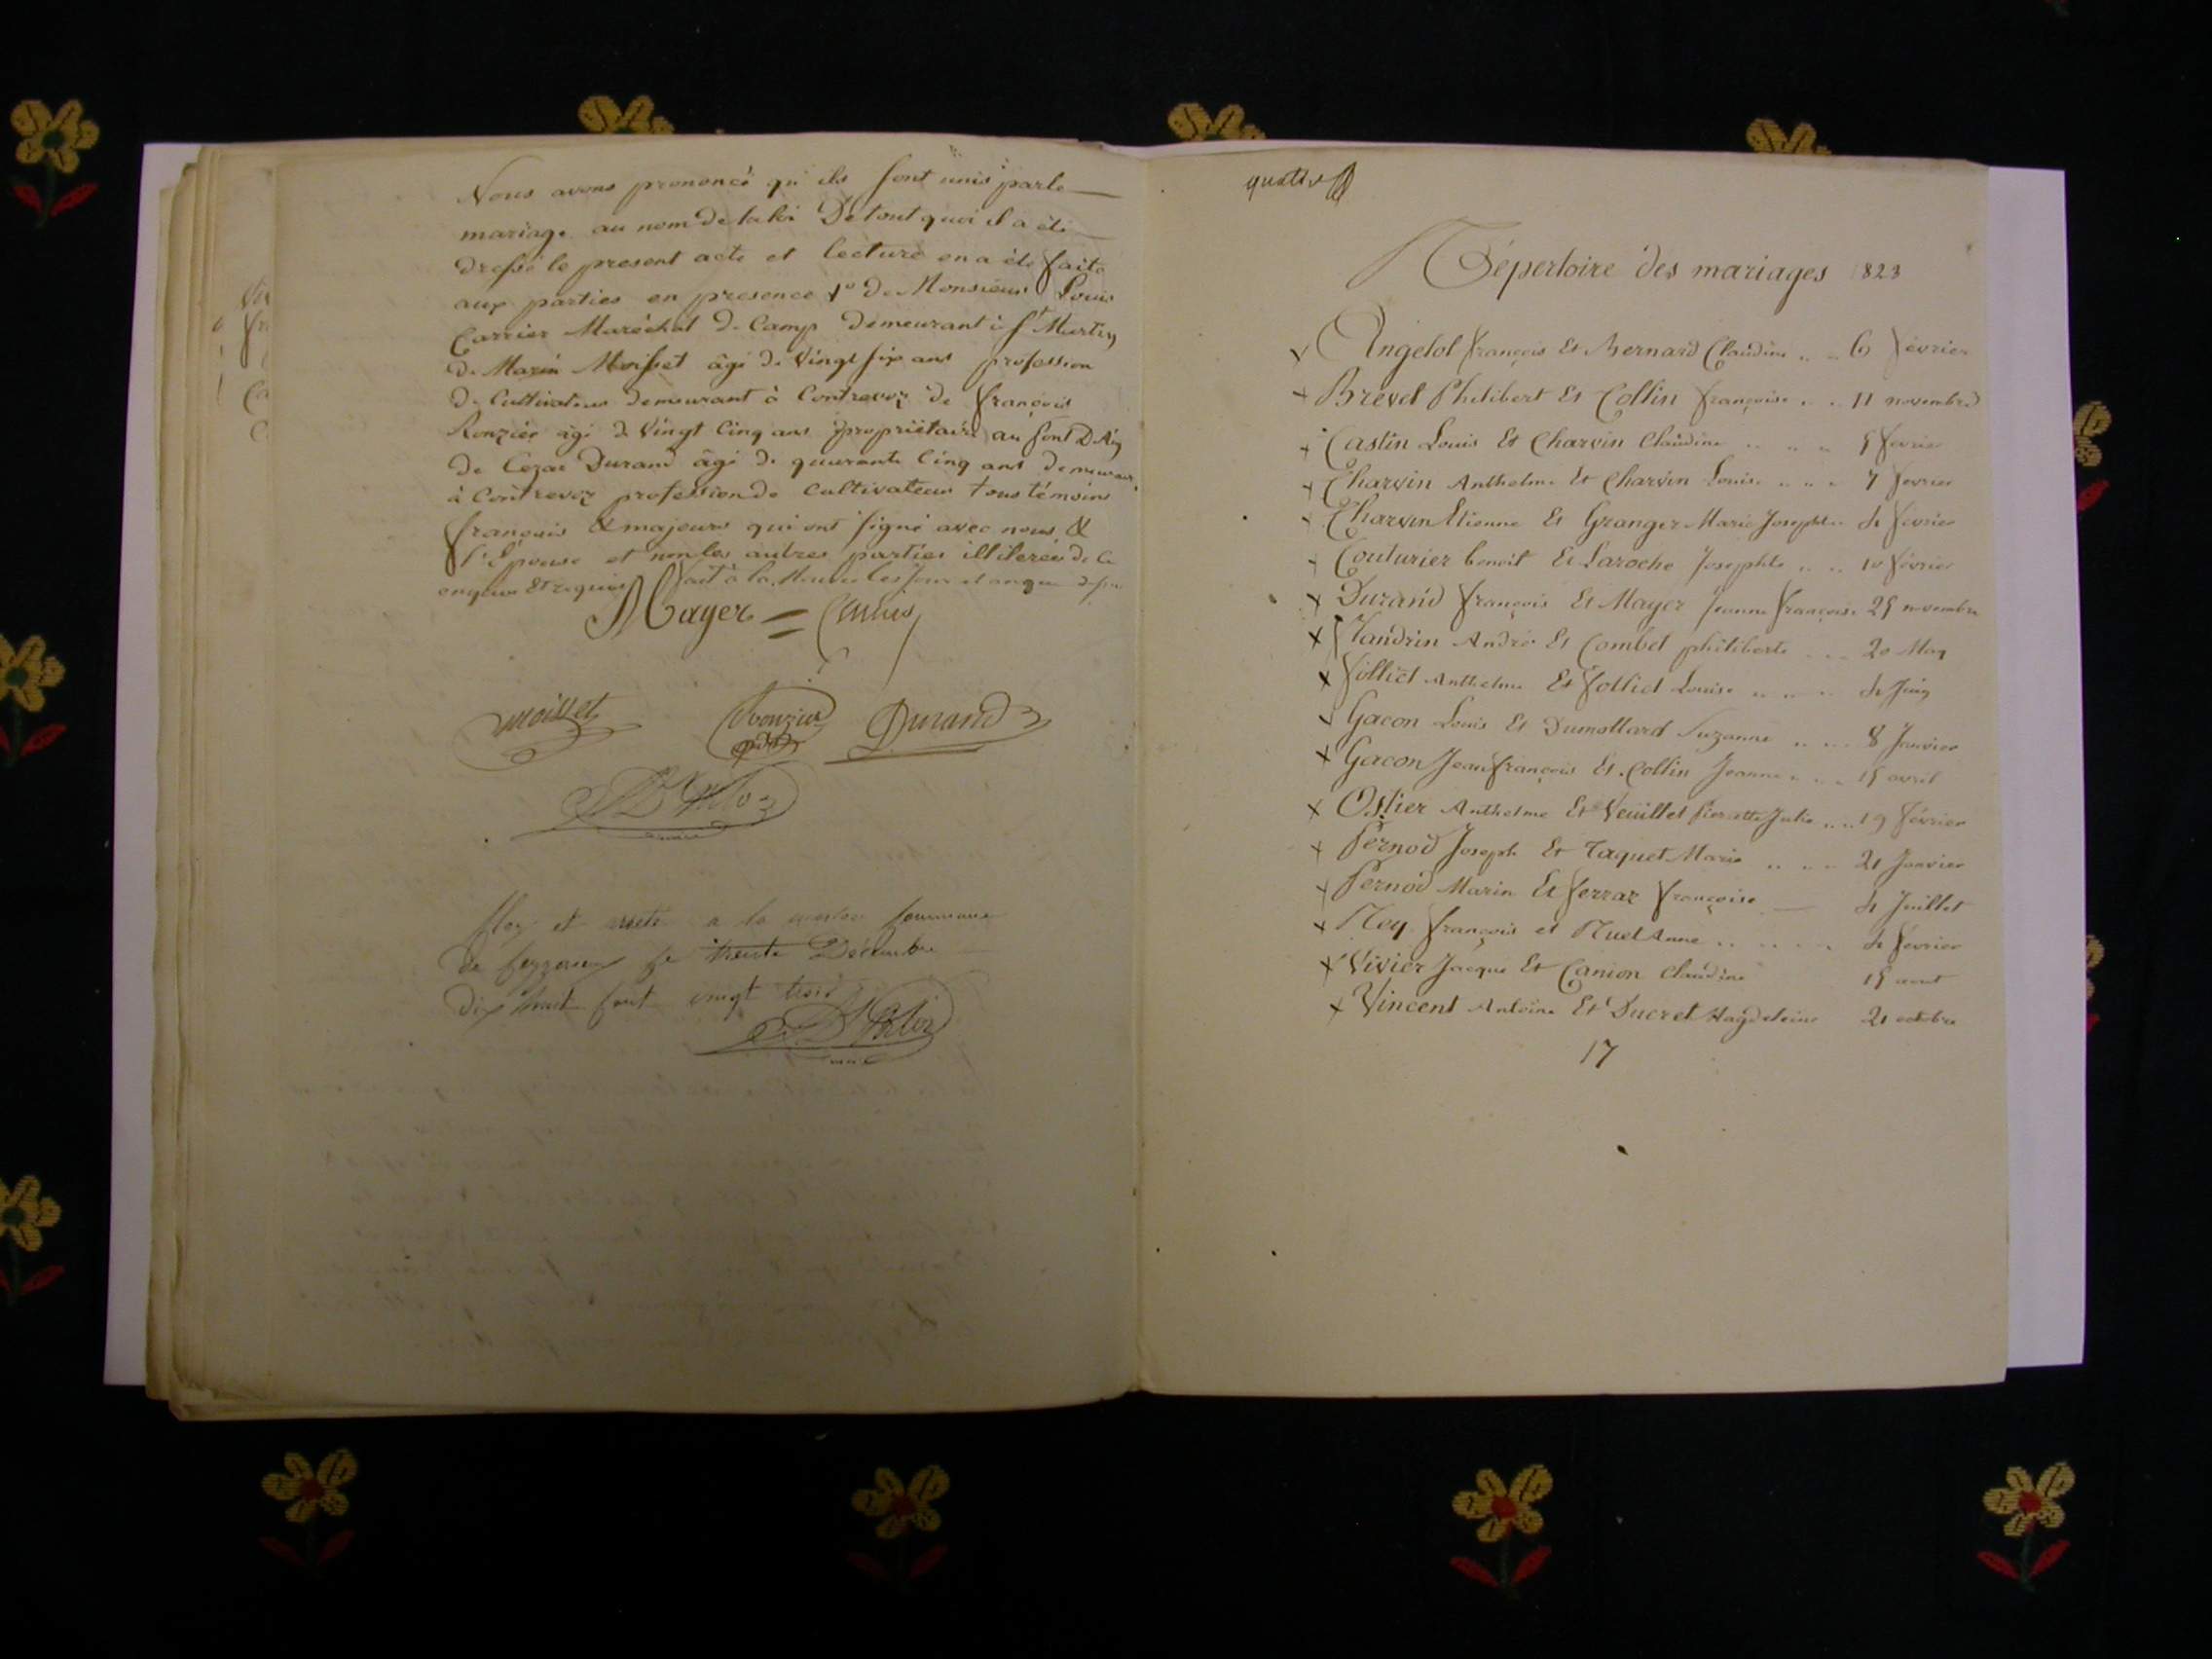 Nous avons prononcé qu'ils sont unis par le
mariage au nom de la loi De tout quoi il a été
dressé le present acte et lecture en a été faite
aux parties en presence 1° de Monsieur Louis
Carrier Maréchal de Camp demeurant à St Martin
de Marin Moisset âgé de vingt six ans profession
de Cultivateur demeurant à Contrevoz de françois
Ronzier âgé de vingt cinq ans propriétaire au
de Cezar Durand âgé de quarante cinq ans demeurant
à Contrevoz profession de Cultivateur tous témoins
français & majeurs qui ont signé avec nous &
l'Epouse et non les autres parties illiterées de ce
enquis et requis fait à la les jour et an que
Mayer
Moisset Ronzier Durand
Clos et arrêté a la commune
de le trente Décembre
dix huit cent vingt trois
quatre
Répertoire des mariages 1823
Angelot françois Et Bernard Claudine .. .. 6 février
Brevet Philibert Et Collin françoise . .. 11 novembre
Castin Louis Et Charvin Claudine .. .. .. 5 février
Charvin Anthelme Et Charvin Louise .. .. .. 7 fevrier
Charvin Etienne Et Granger Marie Josephte .. 4 février
Couturier benoit Et Laroche Josephte .. .. 10 février
Durand françois Et Mayer Jeanne françoise 25 novembre
Tandrin André Et Combet philiberte .. .. 20 May
folliet Anthelme Et folliet Louise .. .. .. 4 Juin
Gacon Louis Et Dumollard Suzanne .. .. 8 Janvier
Gacon Jean françois Et Collin Jeanne .. .. 15 avril
Ostier Anthelme Et Veuillet Pierrette Julie .. .. 19 février
Pernod Joseph Et Taquet Marie .. .. .. 21 Janvier
Pernod Marin Et ferraz françoise — 4 Juillet
Rey françois et Ruel Anne .. .. .. .. 4 février
Vivier Jacque Et Canion Claudine 15 aout
Vincent Antoine Et Ducret Magdeleine 21 octobre
17